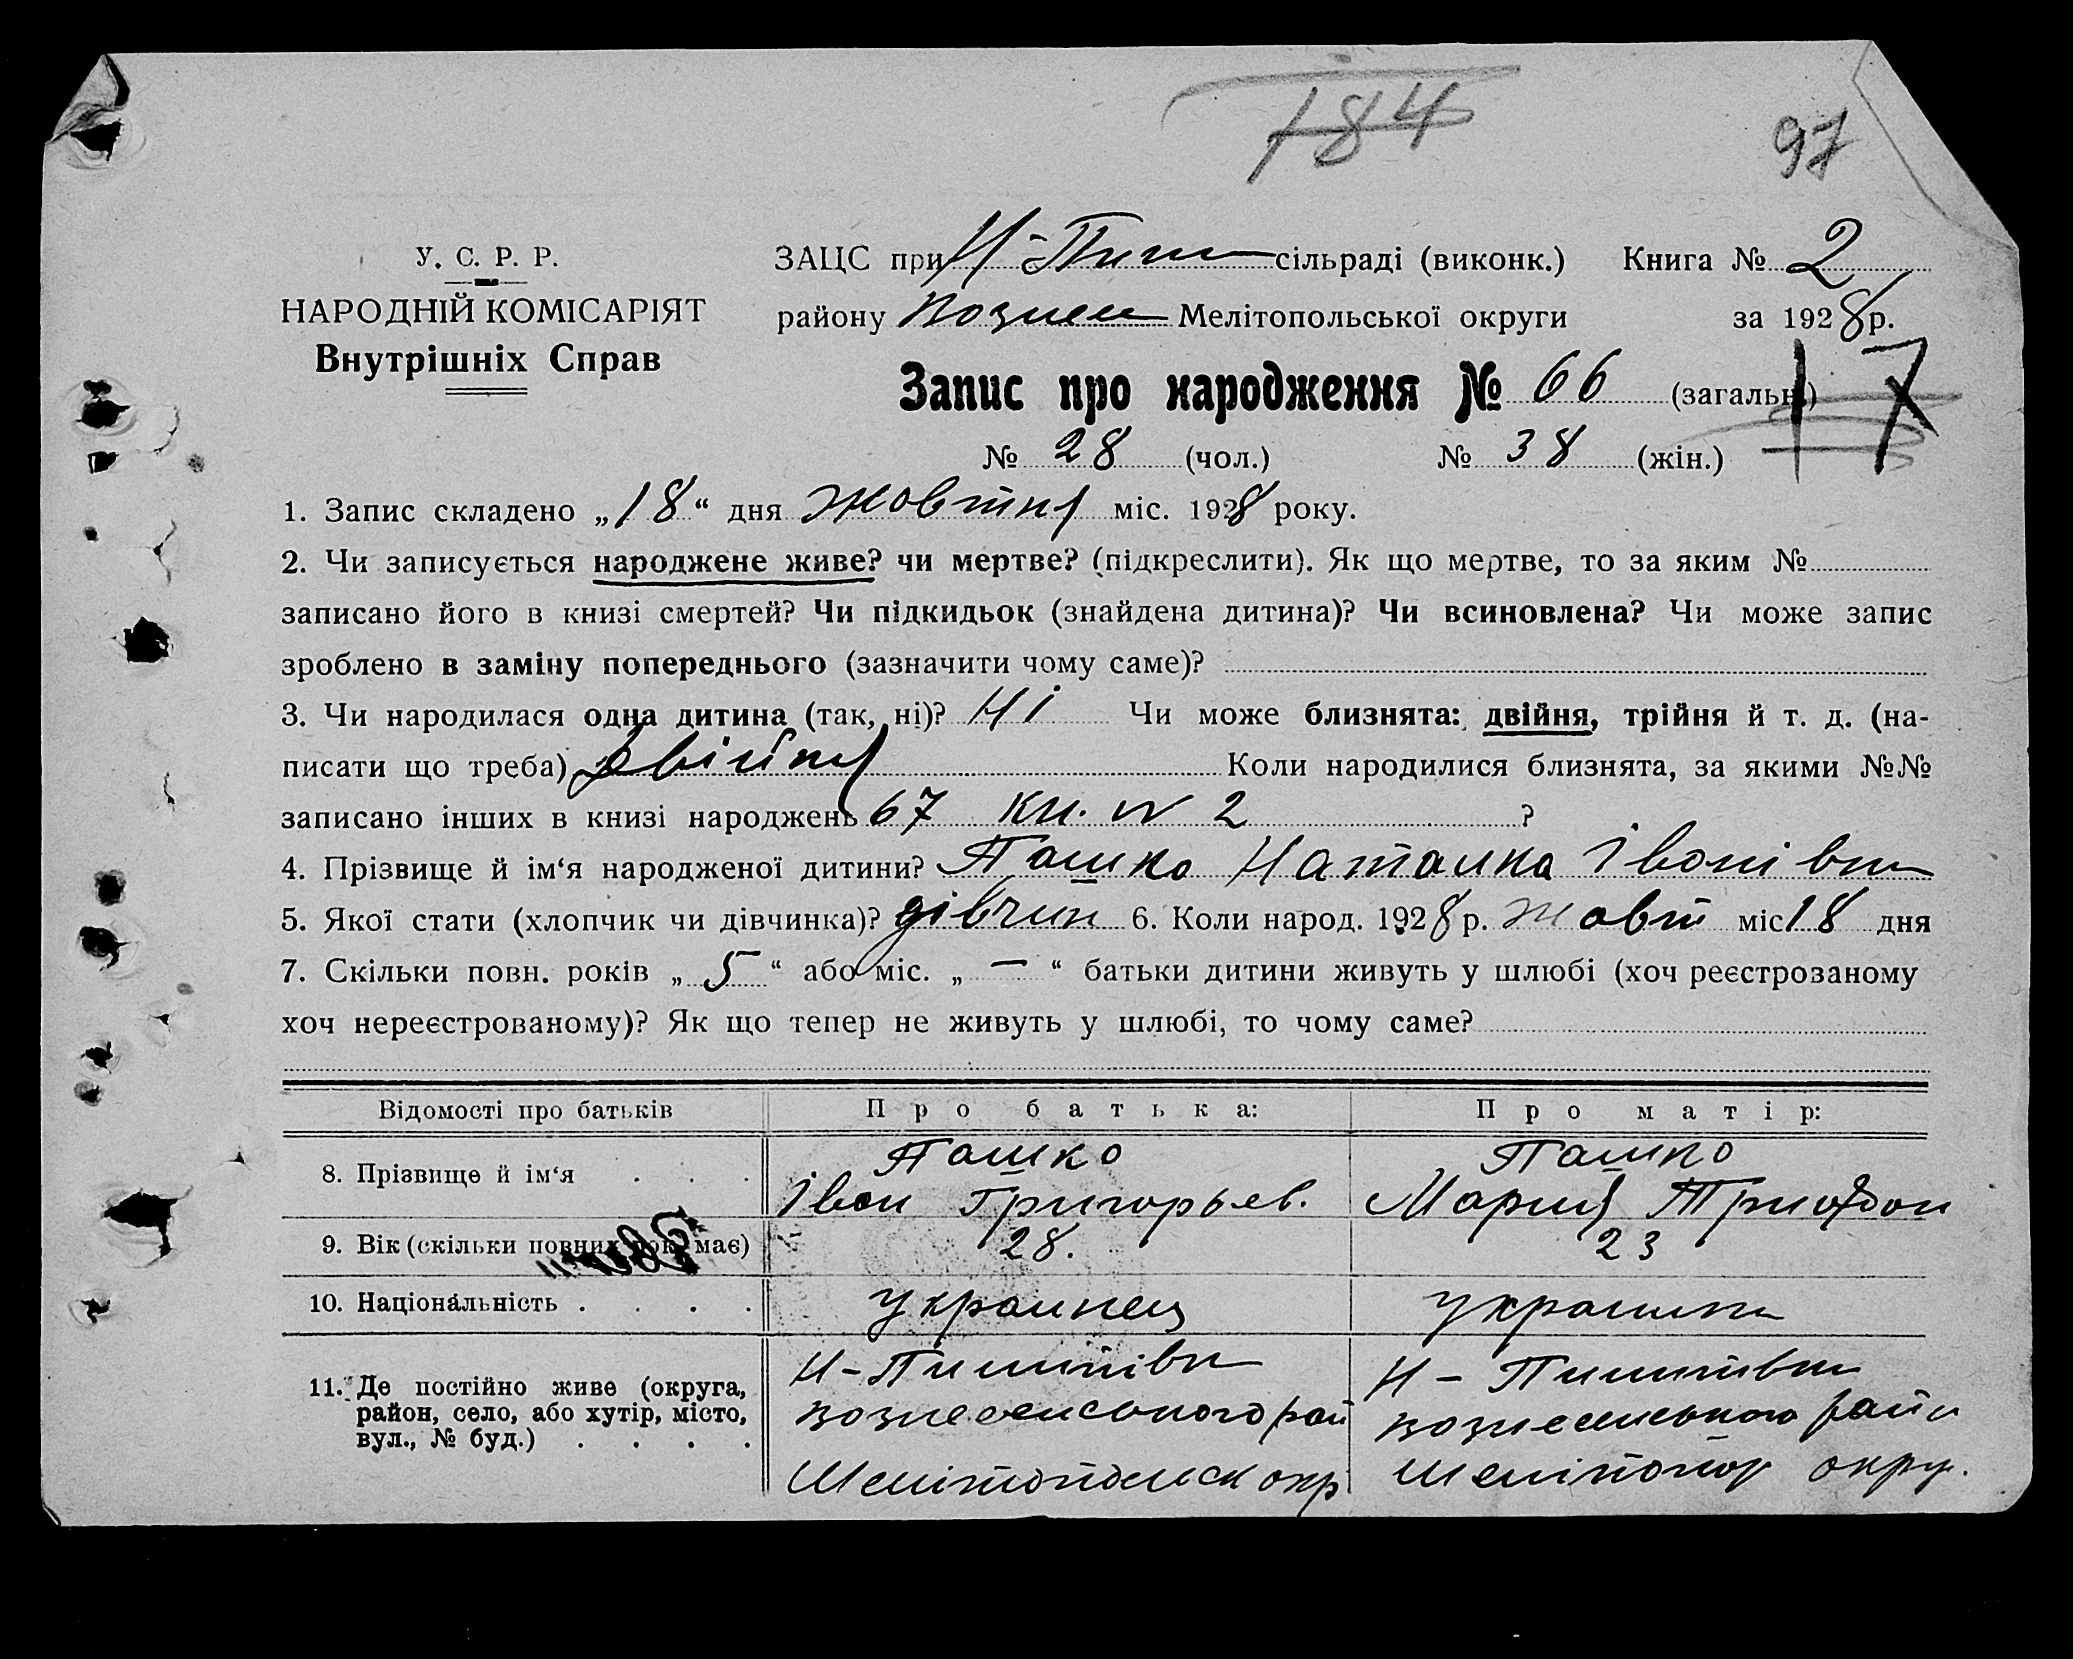 184
97
У. С. Р. Р.
НАРОДНІЙ КОМІСАРІЯТ
Внутрішніх Справ
ЗАЦС при Н-Пиш сільраді (виконк.) Книга № 2
району Вознесен Мелітопольської округи за 1928 р.
Запис про народження № 66 (загальн.)
17
№ 28 (чол.) № 38 (жін.)
1. Запис складено „18“ дня жовтня міс. 1928 року.
2. Чи записується народжене живе? чи мертве? (підкреслити). Як що мертве, то за яким №
записано його в книзі смертей? Чи підкидьок (знайдена дитина)? Чи всиновлена? Чи може запис
зроблено в заміну попереднього (зазначити чому саме)?
3. Чи народилася одна дитина (так, ні)? Ні Чи може близнята: двійня, трійня й т. д. (на-
писати що треба) двійня Коли народилися близнята, за якими №№
записано інших в книзі народжень 67 кн. № 2 ?
4. Прізвище й ім‘я народженої дитини? Пашко Наталка Іванівна
5. Якої стати (хлопчик чи дівчинка)? дівчин 6. Коли народ. 1928 р. жовт міс 18 дня
7. Скільки повн. років „ 5 “ або міс. „ — “ батьки дитини живуть у шлюбі (хоч реєстрозаному
хоч нереєстрованому)? Як що тепер не живуть у шлюбі, то чому саме?
Відомості про батьків Про батька: Про матір:
8. Прізвище й ім‘я . . . Пашко Іван Григорьев. Пашко Мария
9. Вік (скільки повних рок. має) 28. 23
10. Національність . . . . Украинец украинка
11. Де постійно живе (округа, район, село, або хутір, місто, вул., № буд.) . . . .
Н-Пишківка вознесенського рай Мелітопольск окр
Н-Пишківка вознесенського райн Мелітопол окру.